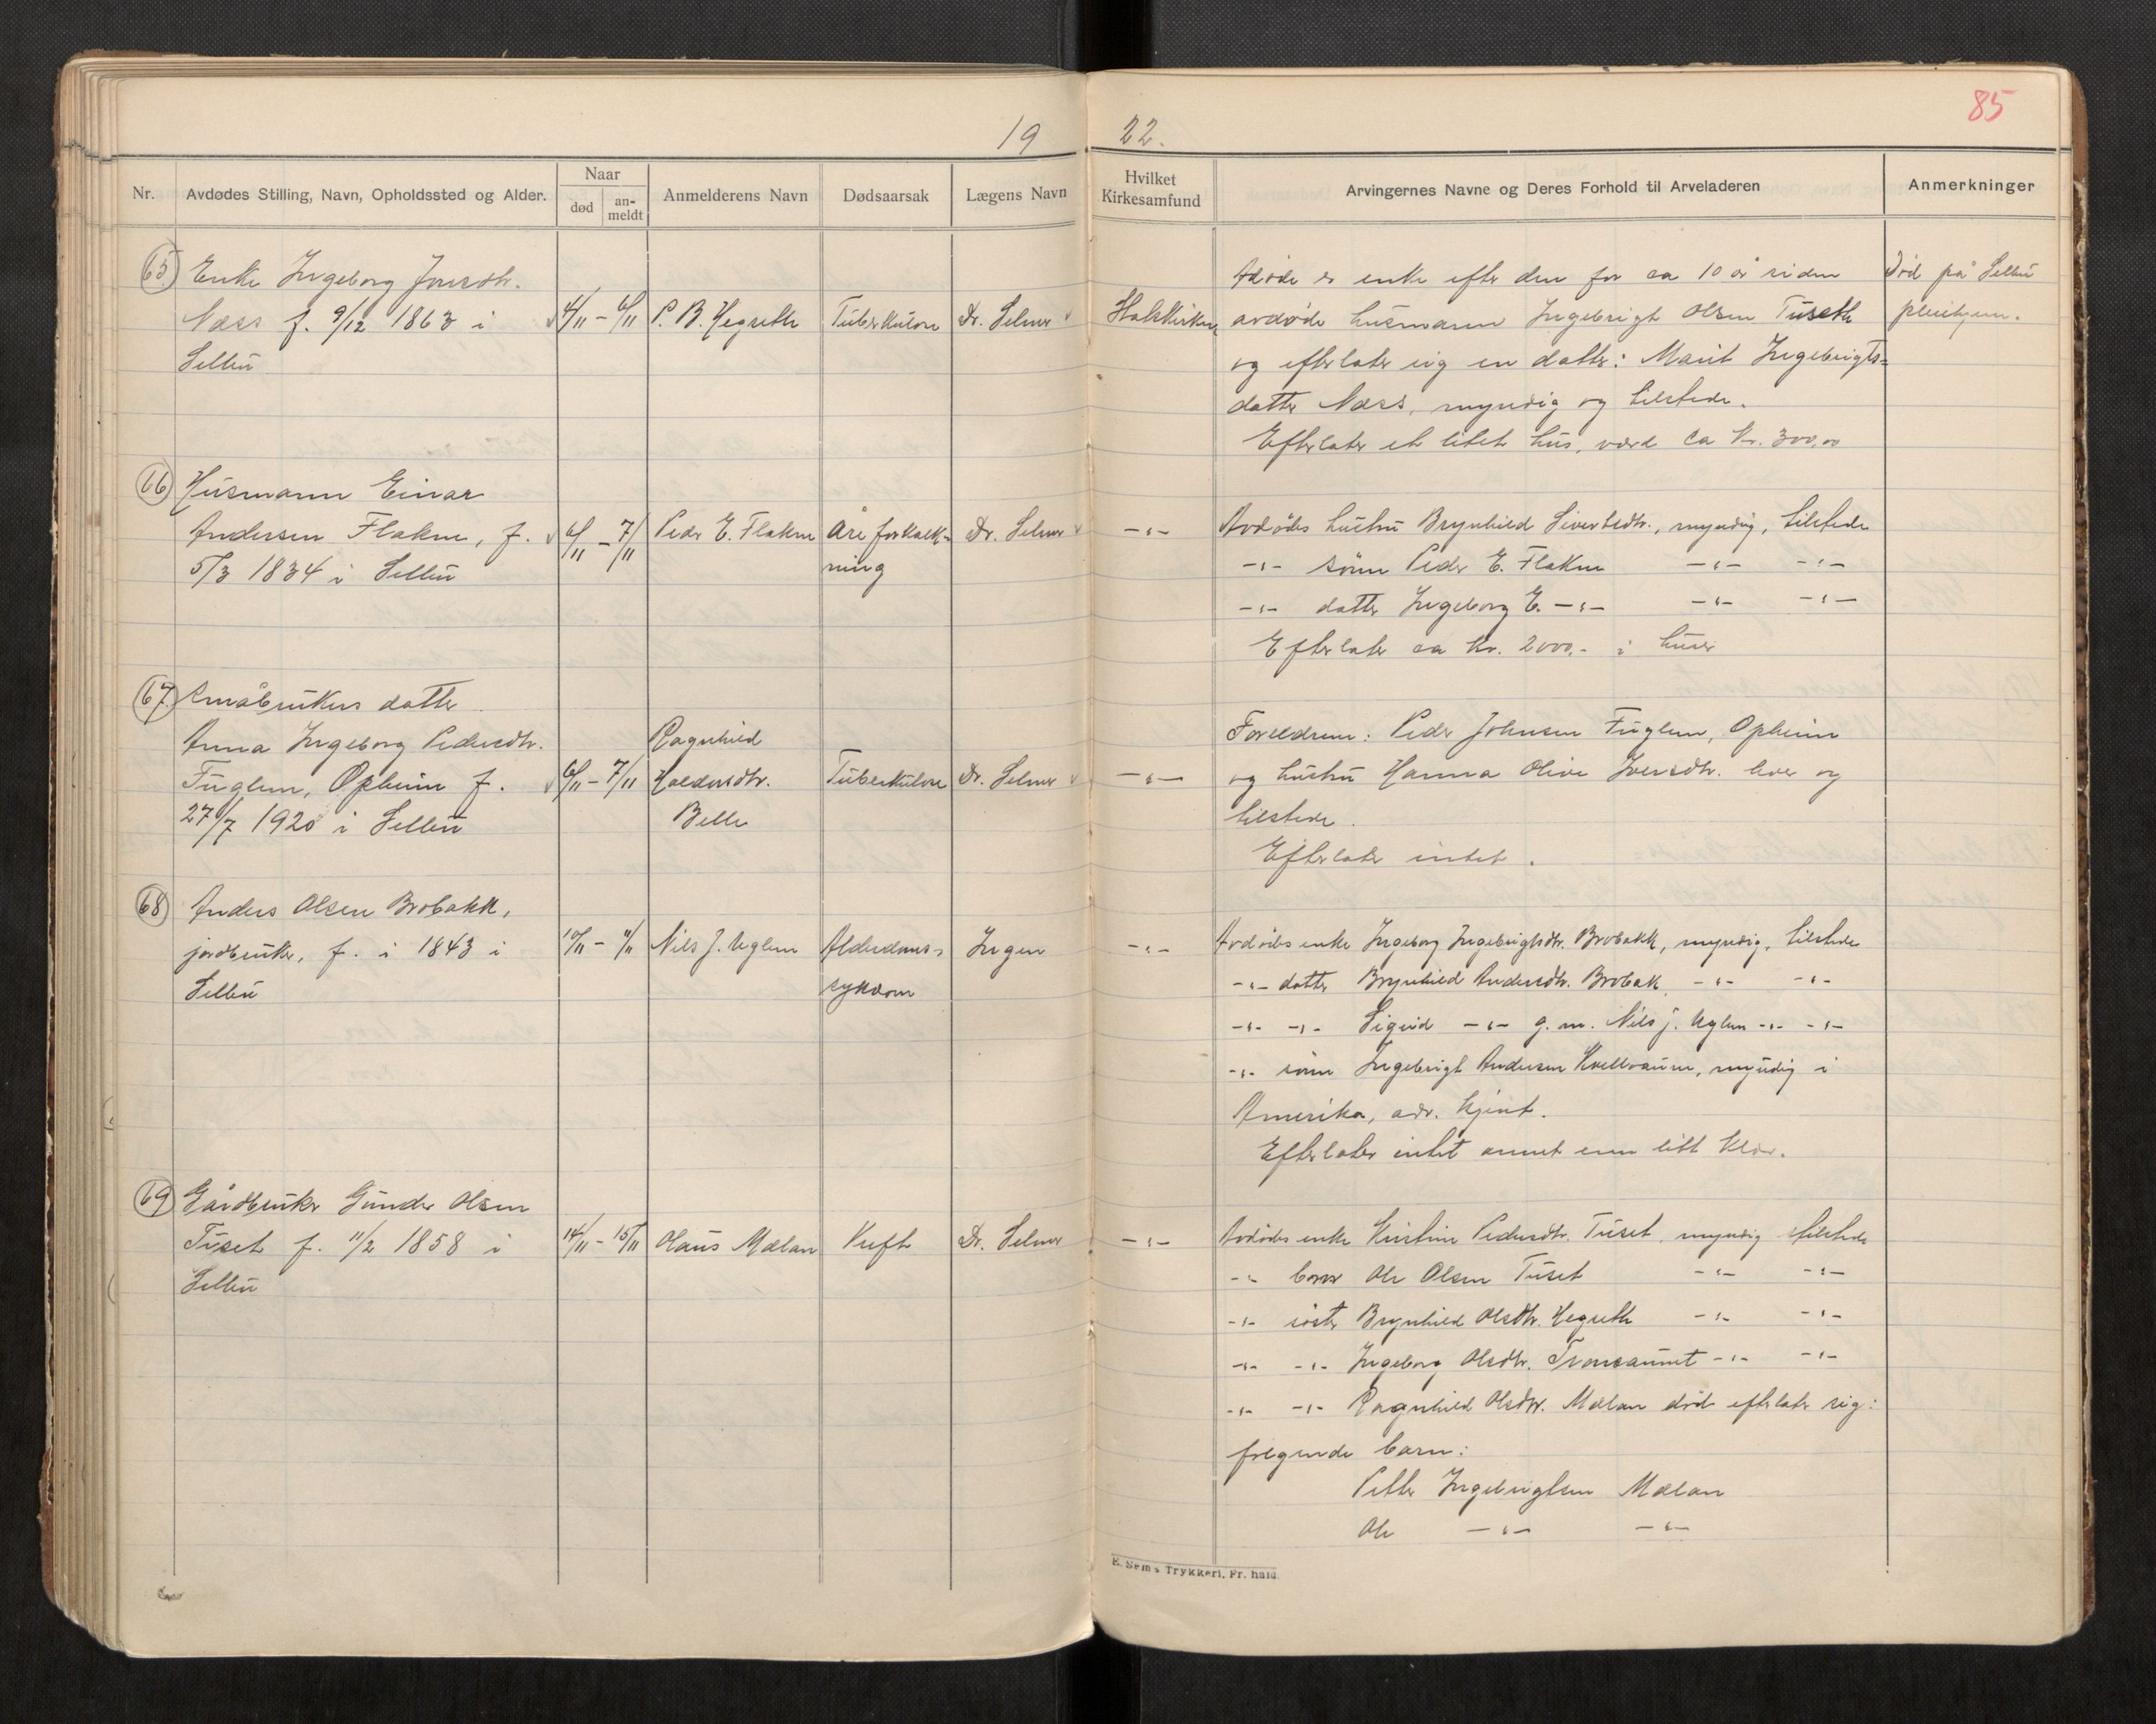 85
19 22.
Nr. Avdødes Stilling, Navn, Opholdssted og Alder. Naar død an-meldt Anmelderens Navn Dødsaarsak Lægens Navn Hvilket Kirkesamfund Arvingernes Navne og Deres Forhold til Arveladeren Anmerkninger
65. Enke Ingeborg Jonsdtr.
Næss f. 9/12 1863 i
Selbu
4/11 - 6/11 P. B. Hegseth Tuberkulose Dr. Selmer Statskirken
Avdøde er enke efter den for ca 10 år siden
avdøde husmann Ingebrigt Olsen Tuseth
og efterlater sig en datter: Marit Ingebrigts=
datter Næss, myndig og tilstede.
Efterlater et litet hus, værd ca kr. 300,00
Død på Selbu
pleiehjem.
66 Husmann Einar
Andersen Flakne, f.
5/3 1834 i Selbu
6/11 - 7/11 Peder E. Flakne Åreforkalk=
ning
Dr. Selmer -"-
Avdødes hustru Brynhild Sivertsdtr., myndig, tilstede
-"- sønn Peder E. Flakne -"- -"-
-"- datter Ingeborg E. -"- -"- -"-
Efterlater ca kr. 2000.- i huser
67. Småbrukers datter
Anna Ingeborg Pedersdtr.
Fuglem, Opheim f.
27/7 1920 i Selbu
6/11 - 7/11 Ragnhild
Haldorsdtr.
Belle
Tuberkulose Dr. Selmer -"-
Foreldrene: Peder Johnsen Fuglem, Opheim
og hustru Hanna Olive Iversdtr. lever og
tilstede.
Efterlater intet.
68 Anders Olsen Brobakk,
jordbruker, f. i 1843 i
Selbu
10/11 - 11/11 Nils J. Uglem Alderdoms-
sykdom
Ingen -"-
Avdødes enke Ingeborg Ingebrigtsdtr. Brobakk, myndig, tilstede
-"- datter Brynhild Andersdtr. Brobak -"- -"-
-"- -"- Sigrid -"- g.m. Nils J. Uglem -"- -"-
-"- sønn Ingebrigt Andersen Kvellosaune, myndig i
Amerika, adr. kjent.
Efterlater intet annet enn litt klær.
69 Gårdbruker Gunder Olsen
Tuset f. 11/2 1858 i
Selbu
14/11 - 15/11 Olaus Mælan Kreft Dr. Selmer -"-
Avdødes enke Kirstine Pedersdtr. Tuset, myndig tilstede
-"- bror Ole Olsen Tuset -"- -"-
-"- søster Brynhild Olsdtr. Hegseth -"- -"-
-"- -"- Ingeborg Olsdtr. Tronsaunet -"- -"-
-"- -"- Ragnhild Olsdtr. Mælan død efterlater sig:
følgende barn:
Petter Ingebrigtsen Mælan
Ole -"- -"-
E. Sem's Trykkeri, Fr.hald.